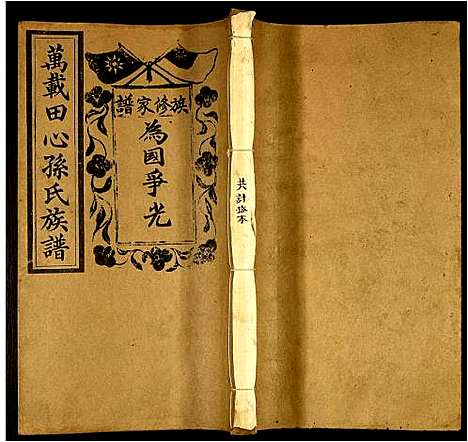 萬載田心孫氏族譜
族修家譜
為國爭光
共計本